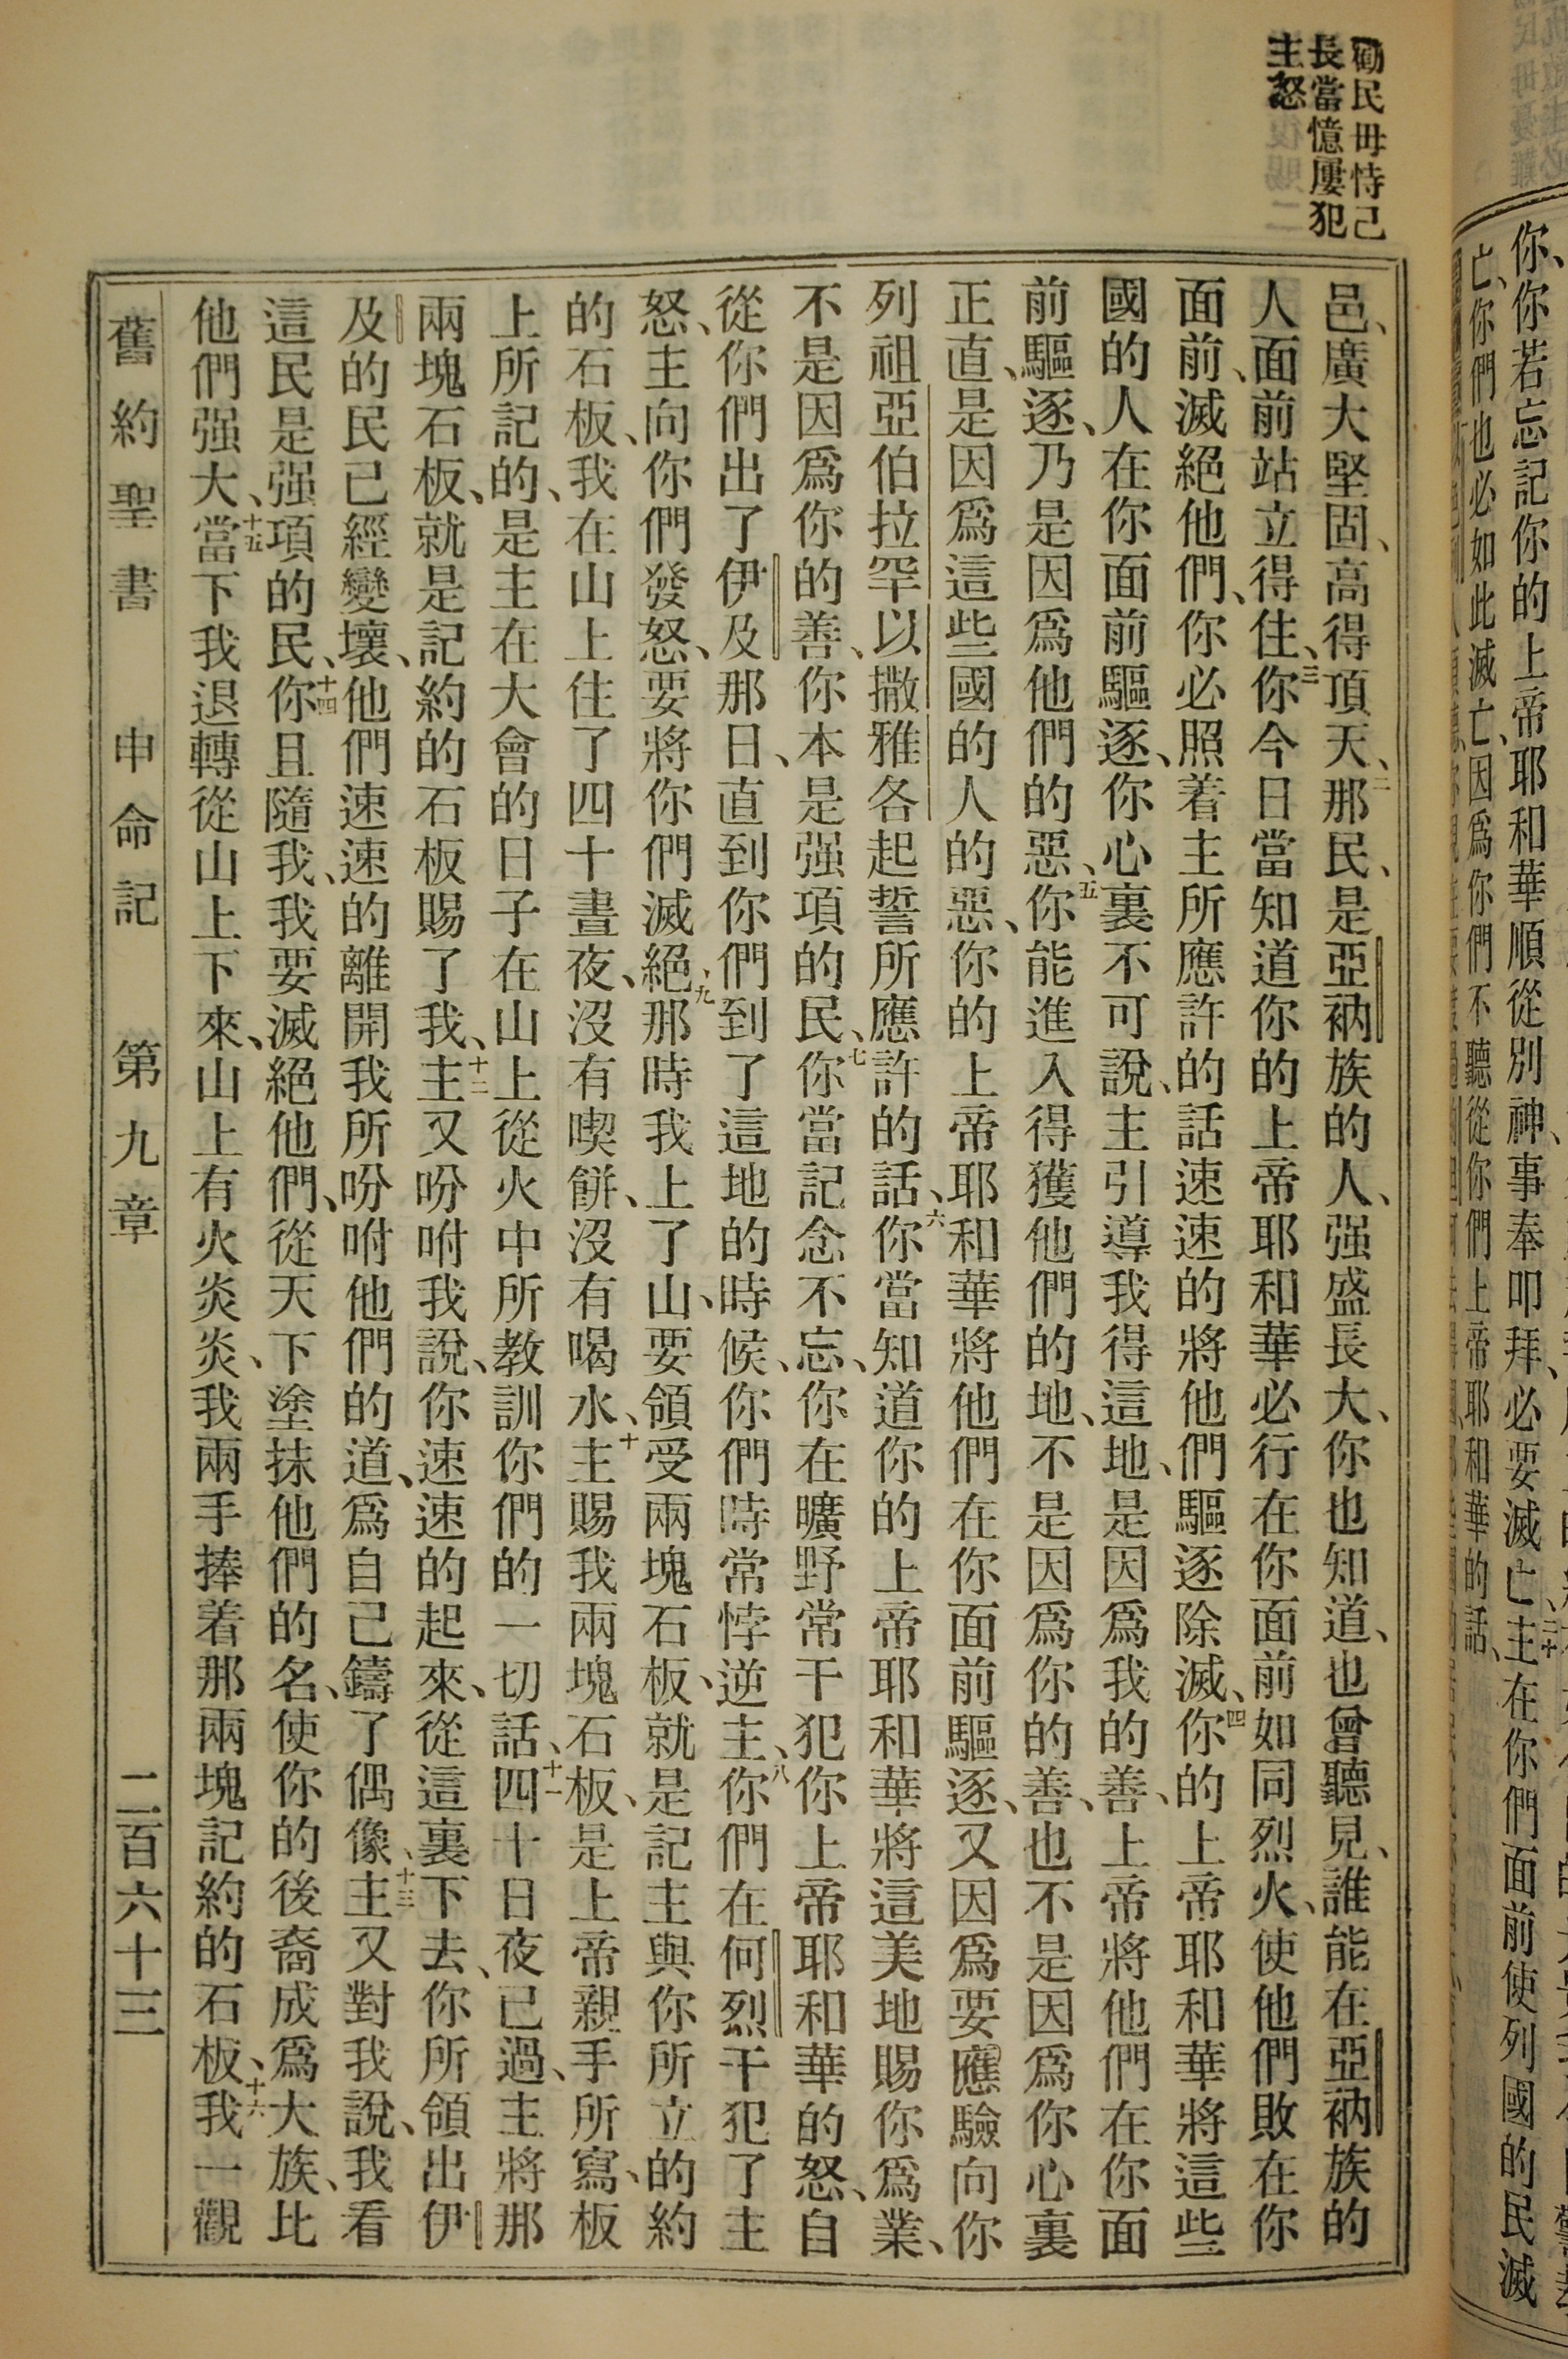 勸民毋恃己
長當憶屢犯
主怒
邑、廣大堅固、高得頂天、二那民、是亞衲族的人、强盛長大、你也知道、也曾聽見、誰能在亞衲族的
人面前站立得住、三你今日當知道你的上帝耶和華必行在你面前如同烈火、使他們敗在你
面前、滅絕他們、你必照着主所應許的話速速的將他們驅逐除滅、四你的上帝耶和華將這些
國的人在你面前驅逐、你心裏不可說、主引導我得這地、是因爲我的善、上帝將他們在你面
前驅逐、乃是因爲他們的惡、五你能進入得獲他們的地、不是因爲你的善、也不是因爲你心裏
正直、是因爲這些國的人的惡、你的上帝耶和華將他們在你面前驅逐、又因爲要應驗向你
列祖亞伯拉罕以撒雅各起誓所應許的話、六你當知道你的上帝耶和華將這美地賜你爲業、
不是因爲你的善、你本是强項的民、七你當記念不忘、你在曠野常干犯你上帝耶和華的怒、自
從你們出了伊及那日、直到你們到了這地的時候、你們時常悖逆主、八你們在何烈干犯了主
怒、主向你們發怒、要將你們滅絕、九那時我上了山、要領受兩塊石板、就是記主與你所立的約
的石板、我在山上住了四十晝夜、沒有喫餅、沒有喝水、十主賜我兩塊石板、是上帝親手所寫、板
上所記的、是主在大會的日子在山上從火中所教訓你們的一切話、十一四十日夜已過、主將那
兩塊石板、就是記約的石板賜了我、十二主又吩咐我說、你速速的起來、從這裏下去、你所領出伊
及的民已經變壞、他們速速的離開我所吩咐他們的道、爲自己鑄了偶像、十三主又對我說、我看
這民是强項的民、十四你且隨我、我要滅絕他們、從天下塗抹他們的名、使你的後裔成爲大族、比
他們强大、十五當下我退轉從山上下來、山上有火炎炎、我兩手捧着那兩塊記約的石板、十六我一觀
舊約聖書 申命記 第九章 二百六十三
你、你若忘記你的上帝耶和華順從別神、事奉叩拜、必要滅亡、二十主在你們面前使列國的民滅
亡、你們也必如此滅亡、因爲你們不聽從你們上帝耶和華的話、